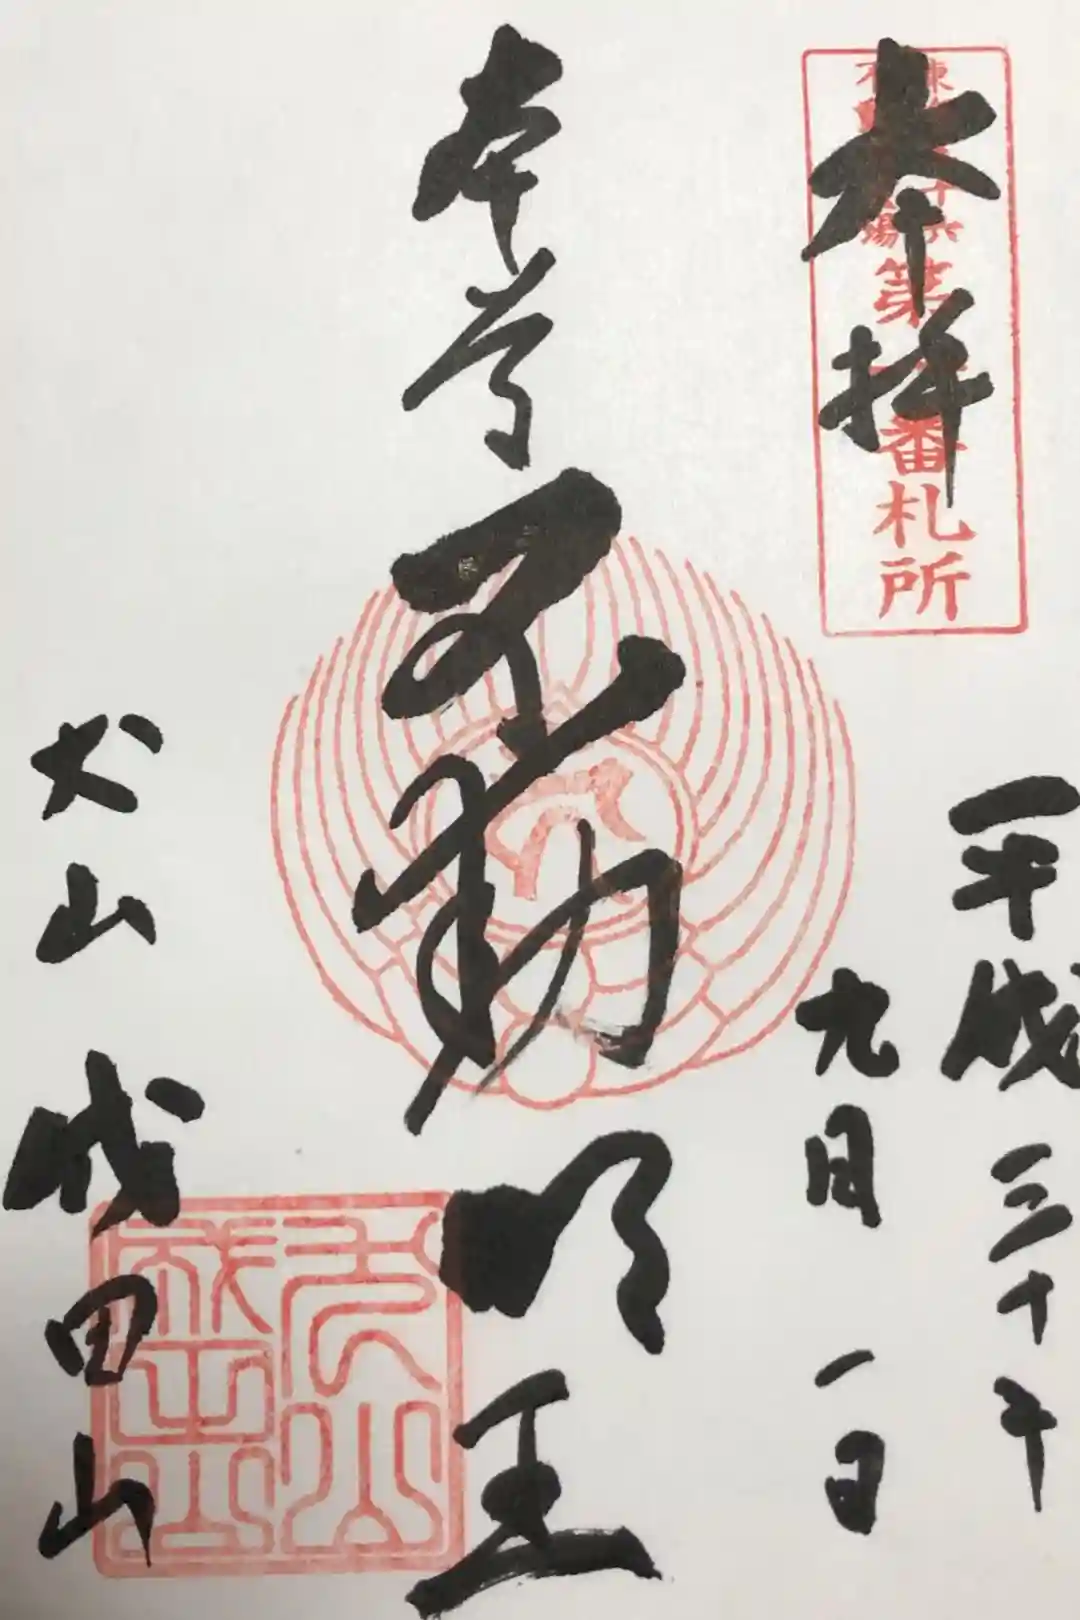 奉拝
第一番札所
平成三十年
九月一日
本尊
不動明王
犬山 成田山